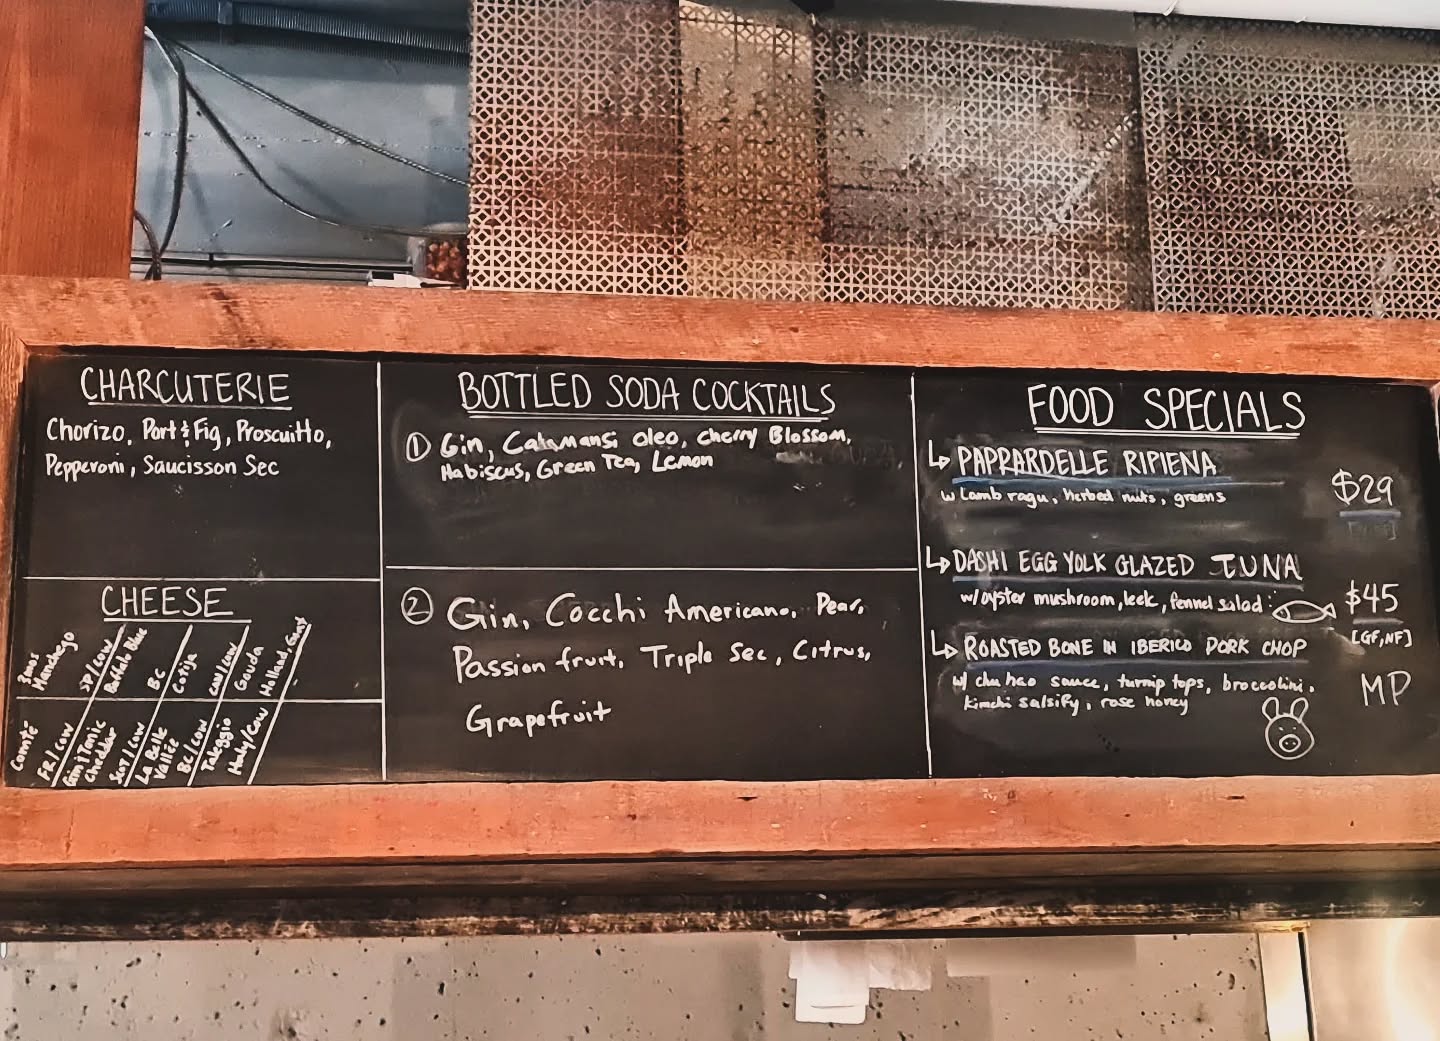 CHARCUTERIE
Chorizo, Port & Fig, Proscuitto,
Pepperoni, Saucisson Sec
CHEESE
Manchego
SP/COW
Buffalo Blue
BC
Cotija
COW/COW
Gouda
Holland, Goat
Comté
FR/COW
Gin & Tonic
Cheddar
Scot/COW
La Belle
Vallée
BC/COW
Taleggio
Italy/Cow
BOTTLED SODA COCKTAILS
① Gin, Calamansi Oleo, Cherry Blossom,
Habiscus, Green Tea, Lemon
② Gin, Cocchi Americano, Pear,
Passion fruit, Triple Sec, Citrus,
Grapefruit
FOOD SPECIALS
↳ PAPPARDELLE RIPIENA
w Lamb ragu, Herbed nuts, greens
$29
↳ DASHI EGG YOLK GLAZED TUNA
w/oyster mushroom, leek, fennel salad
$45
[GF,NF]
↳ ROASTED BONE IN IBERICO PORK CHOP
w/ chu hao sauce, turnip tops, broccolini,
kimchi salsify, rose honey
MP